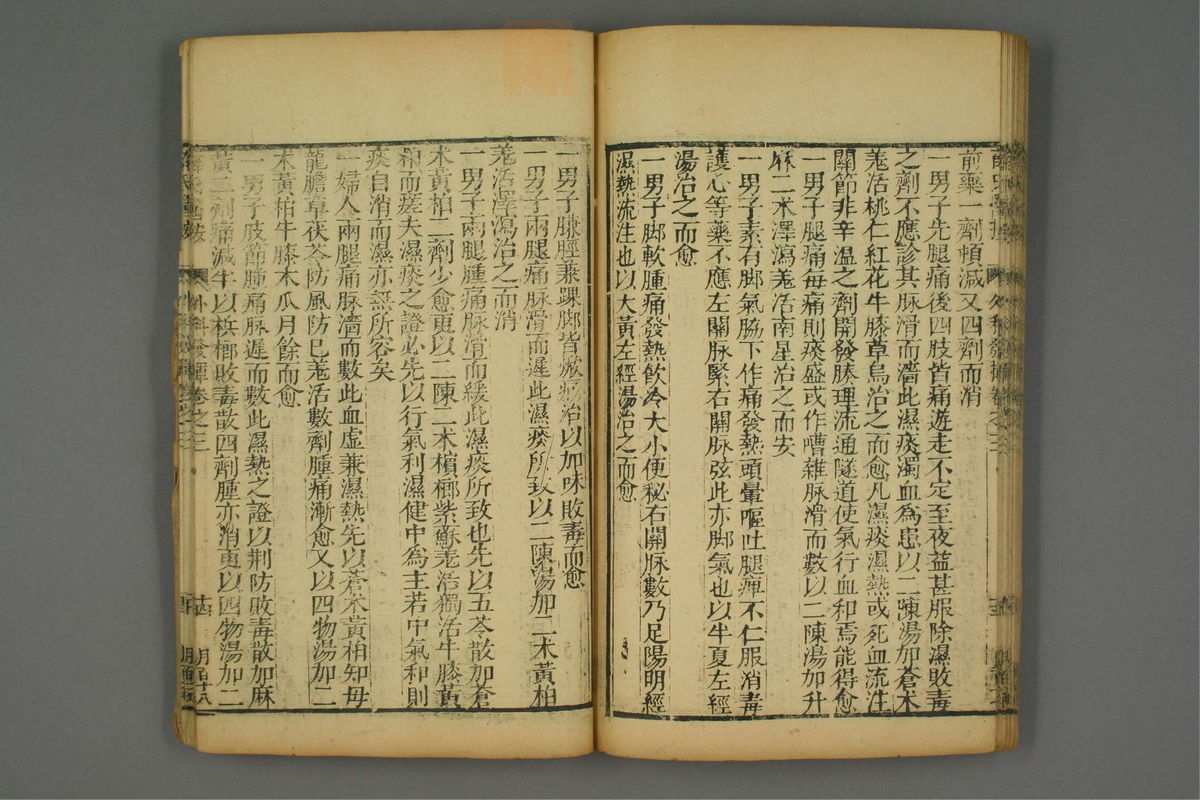 前藥一劑頓減又四劑而消
一男子先腿痛後四肢皆痛遊走不定至夜益甚服除濕敗毒
之劑不應診其脉滑而濇此濕痰濁血為患以二陳湯加蒼术
羗活桃仁紅花牛膝草烏治之而愈凡濕痰濕熱或死血流注
關節非辛温之劑開發腠理流通隧道使氣行血和焉能得愈
一男子腿痛每痛則痰盛或作嘈雜脉滑而數以二陳湯加升
麻二术澤瀉羗活南星治之而安
一男子素有脚氣脇下作痛發熱頭暈嘔吐腿痺不仁服消毒
護心等藥不應左關脉緊右關脉弦此亦脚氣也以半夏左經
湯治之而愈
一男子脚軟腫痛發熱飲冷大小便秘右關脉數乃足陽明經
濕熱流注也以大黃左經湯治之而愈
一男子臁脛兼踝脚皆
治以加味敗毒而愈
一男子兩腿痛脉滑而遲此濕痰所致以二陳湯加二术黃柏
羗活澤瀉治之而消
一男子兩腿腫痛脉滑而緩此濕痰所致也先以五苓散加蒼
术黃柏二劑少愈更以二陳二术檳榔紫蘇羗活獨活牛膝黃
柏而瘥夫濕痰之證必先以行氣利濕健中為主若中氣和則
痰自消而濕亦無所容矣
一婦人兩腿痛脉濇而數此血虛兼濕熱先以蒼术黃柏知母
龍膽草茯苓防風防巳羗活數劑腫痛漸愈又以四物湯加二
术黃柏牛膝木瓜月餘而愈
一男子肢節腫痛脉遲而數此濕熱之證以荆防敗毒散加麻
黃二劑痛減半以檳榔敗毒散四劑腫亦消更以四物湯加二
外科發揮卷之三